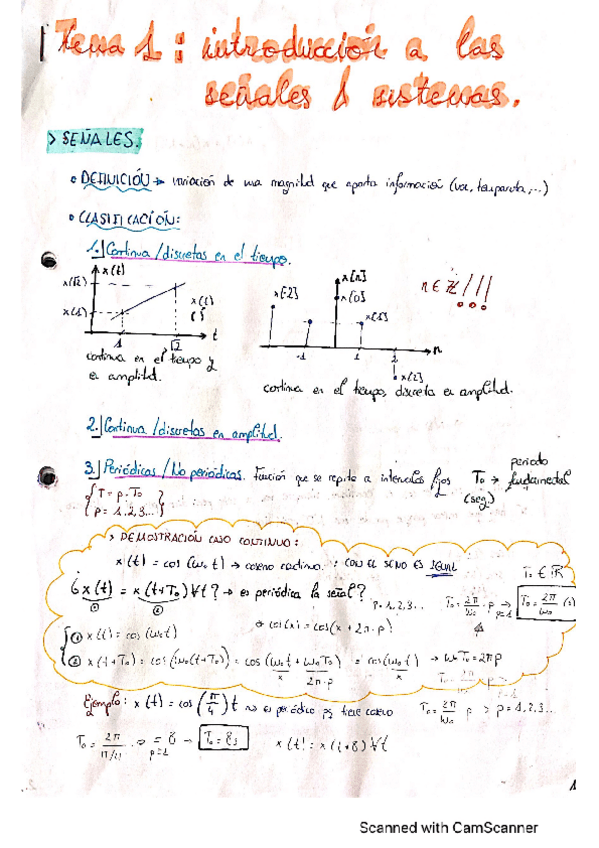 Tema 1: introducción a las
señales y sistemas.
> SEÑALES.
• DEFINICIÓN → variación de una magnitud que aporta información (voz, temperatura,...)
• CLASIFICACIÓN:
1.] Continua / discretas en el tiempo.
x(t)
x(√2)
x(1)
x(t)
1 √2 t
continua en el tiempo y
en amplitud.
x[n]
x[-2] x[0]
x[1]
-1 1 2 n
x[2]
n ∈ ℤ!!!
continua en el tiempo, discreta en amplitud.
2.] Continua / discretas en amplitud.
3.] Periódicas / No periódicas. Función que se repite a intervalos fijos T₀ → periodo fundamental (seg)
{T = p·T₀
p = 1, 2, 3...}
> DEMOSTRACIÓN CASO CONTINUO:
x(t) = cos(ω₀t) → coseno continuo. : CON EL SENO ES IGUAL
T₀ ∈ ℝ
¿x(t) = x(t+T₀) ∀t? → es periódica la señal?
① ②
p = 1, 2, 3... T₀ = 2π/ω₀ · p → p=1 T₀ = 2π/ω₀ (s)
cos(x) = cos(x + 2π·p)
① x(t) = cos(ω₀t)
② x(t+T₀) = cos(ω₀(t+T₀)) = cos(ω₀t + ω₀T₀) = cos(ω₀t) → ω₀T₀ = 2πp
x 2π·p x
T₀ = 2π/ω₀ p
Ejemplo: x(t) = cos(π/4)t → es periódico pq tiene coseno T₀ = 2π/ω₀ p > p = 1, 2, 3...
T₀ = 2π/π/4 · p = 8 → T₀ = 8s x(t) = x(t+8) ∀t
p=1
1
Scanned with CamScanner